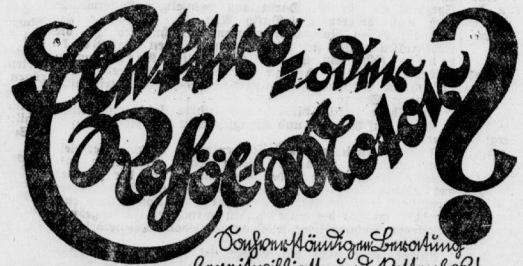 Elektro- oder
Rohöl-Motor?
Sachverständigen-Beratung
bereitwilligst und kostenlos!